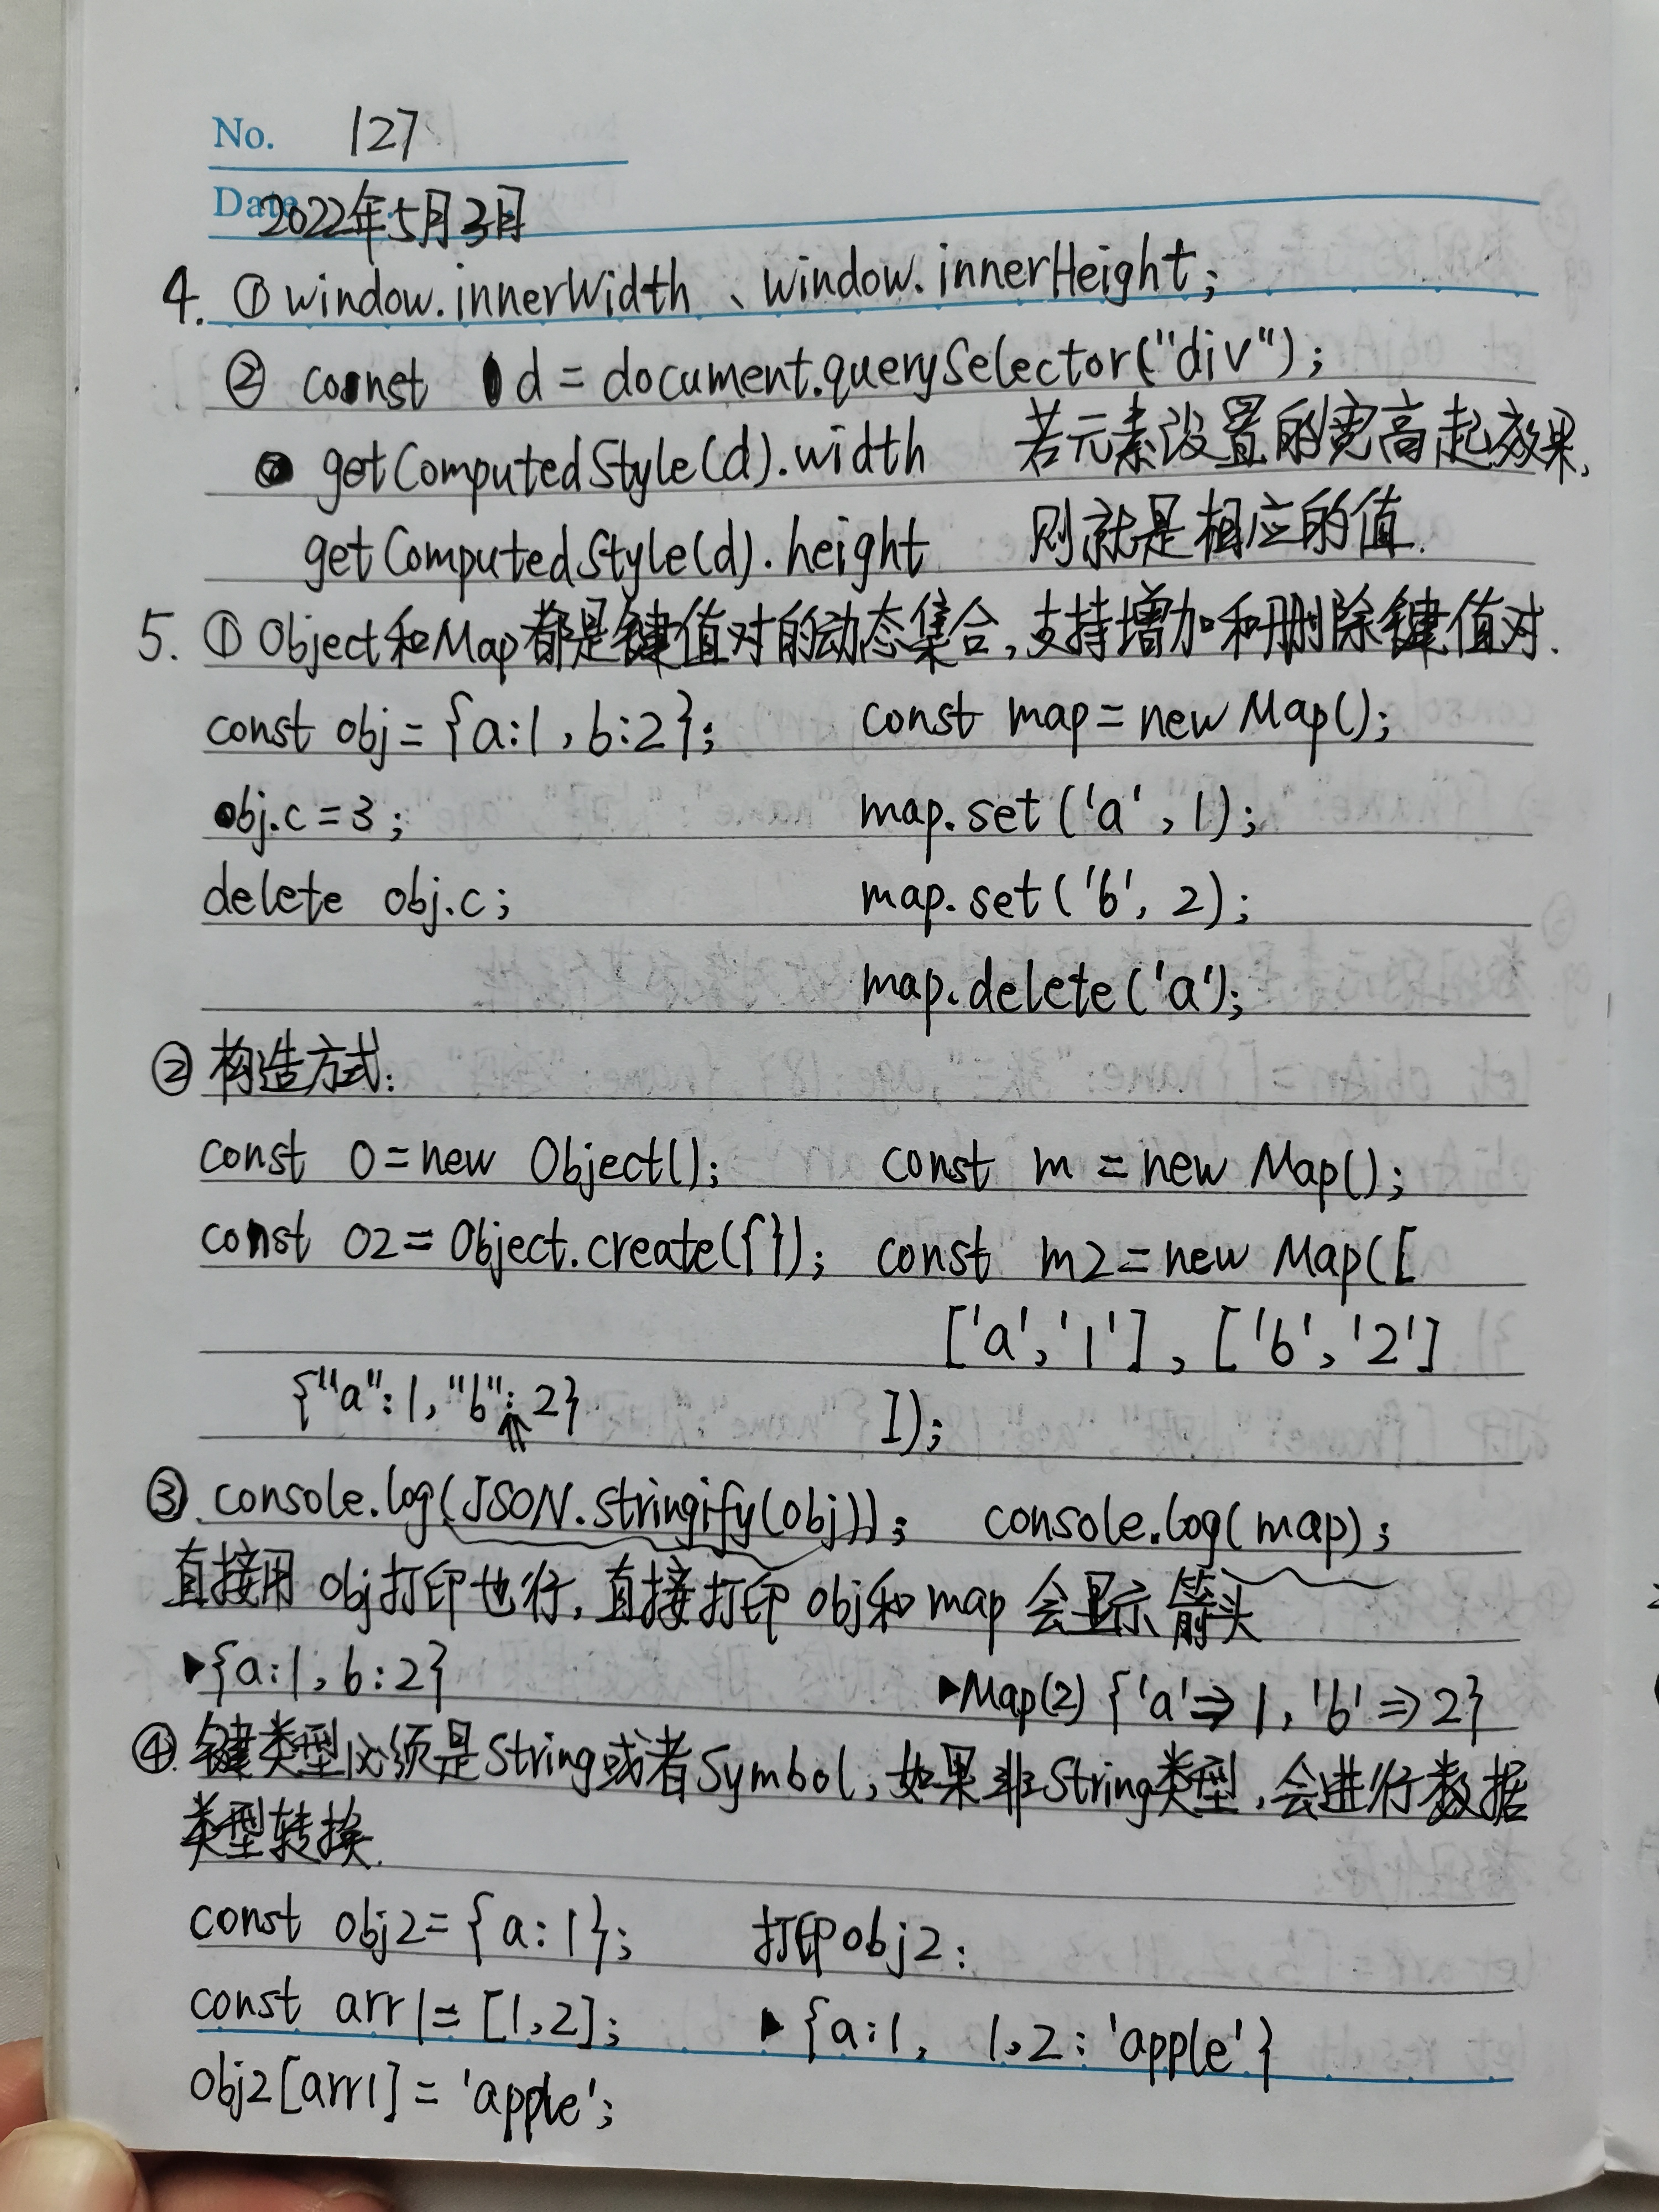 No. 127
Date 2022年5月3日
4. ① window.innerWidth 、window.innerHeight;
② const d = document.querySelector("div");
getComputedStyle(d).width 若元素设置的宽高起效果,
getComputedStyle(d).height 则就是相应的值.
5. ① Object和Map都是键值对的动态集合,支持增加和删除键值对.
const obj = {a:1, b:2}; const map = new Map();
obj.c = 3; map.set('a', 1);
delete obj.c; map.set('b', 2);
map.delete('a');
② 构造方式:
const o = new Object(); const m = new Map();
const o2 = Object.create({}); const m2 = new Map([
['a','1'], ['b','2']
{"a":1, "b":2} ]);
③. console.log(JSON.stringify(obj)); console.log(map);
直接用 obj打印也行,直接打印 obj和map 会显示箭头
▶{a:1, b:2} ▶Map(2) {'a'⇒1, 'b'⇒2}
④. 键类型必须是String或者Symbol,如果非String类型,会进行数据
类型转换.
const obj2 = {a:1}; 打印obj2:
const arr1 = [1,2]; ▶ {a:1, 1,2: 'apple'}
obj2[arr1] = 'apple';